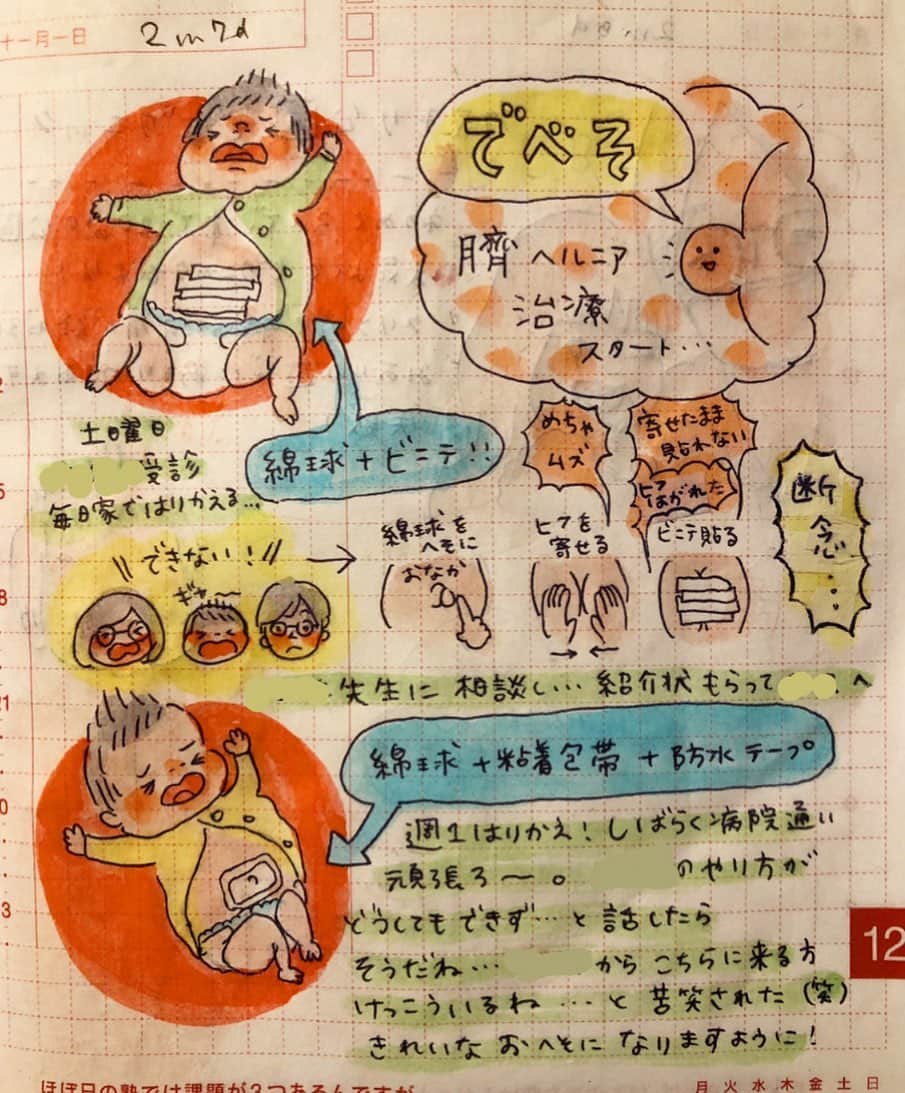 十一月一日
2m7d
でべそ
臍ヘルニア
治療
スタート・・・
綿球+ビニテ!!
土曜日
受診
毎日家ではりかえる…
できない!
ギャー
綿球を
へそに
おなか
めちゃ
ムズ
ヒフを
寄せる
寄せたまま
貼れない
ヒフ
はがれた
ビニテ貼る
断
念
・・・
先生に相談し…紹介状もらって
へ
綿球+粘着包帯+防水テープ
週1はりかえ!しばらく病院通い
頑張ろ〜。
のやり方が
どうしてもできず…と話したら
そうだね…
からこちらに来る方
けっこういるね…と苦笑された(笑)
きれいなおへそになりますように!
12
ほぼ日の塾では課題が3つあるんですが
月火水木金土日